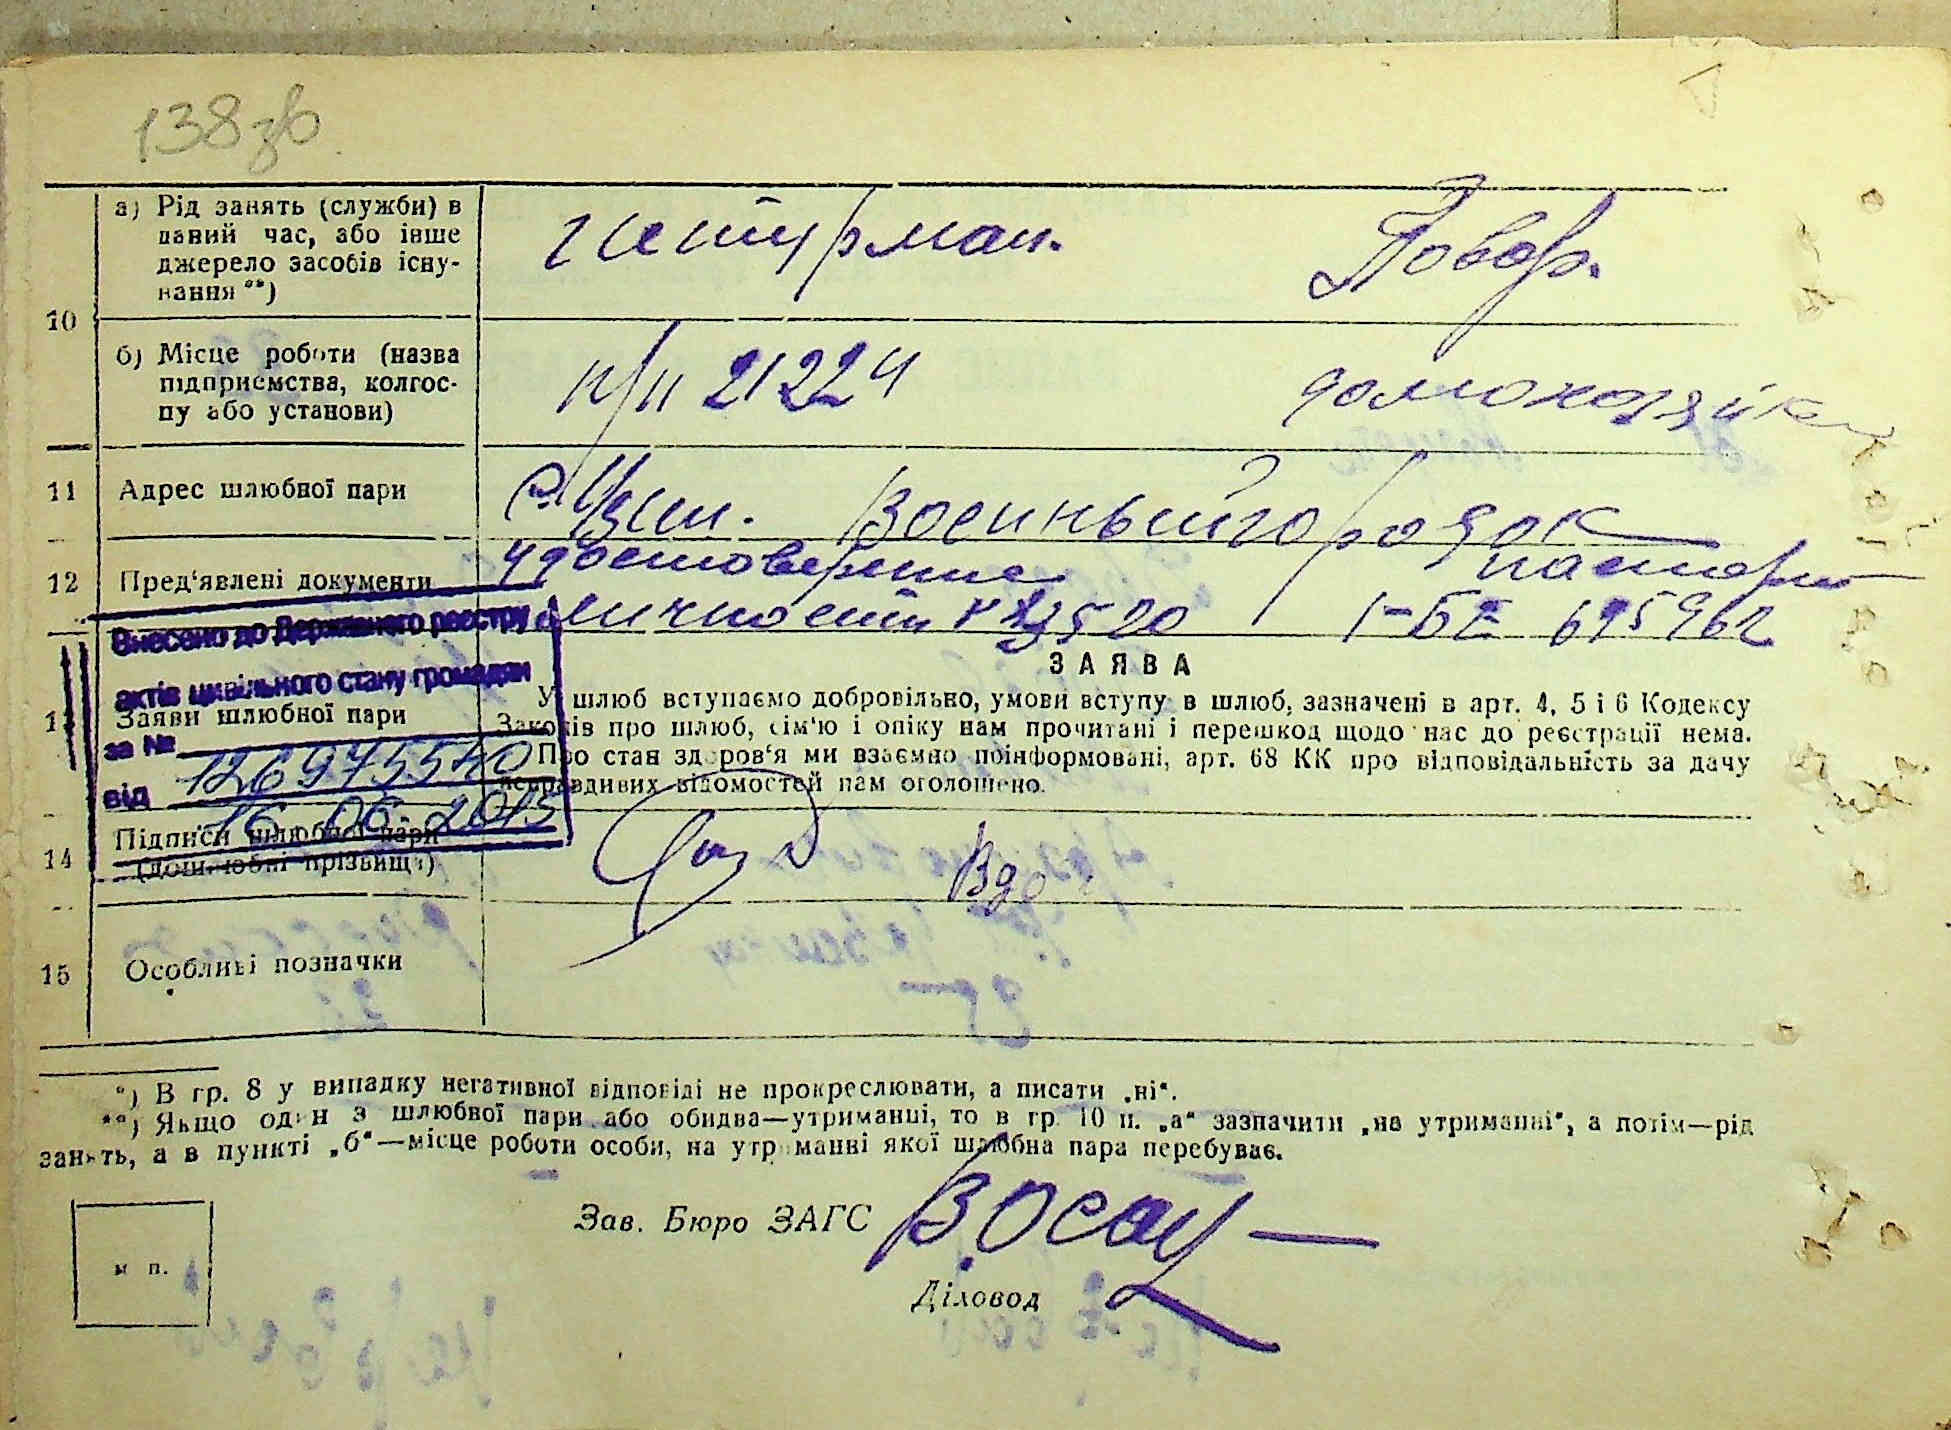 138 зв
а) Рід занять (служби) в
даний час, або інше
джерело засобів існу-
вання **)
Штурман.
Повар.
10
б) Місце роботи (назва
підприємства, колгос-
пу або установи)
п/п 21224
домохозяйка
11 Адрес шлюбної пари
с. Узин. Военный городок
12 Пред'явлені документи
удостоверение
личности
паспорт
1-БЕ 695962
Внесено до Державного реєстру
актів цивільного стану громадян
за № 126975540
від 16.06.2015
13 Заяви шлюбної пари
ЗАЯВА
У шлюб вступаємо добровільно, умови вступу в шлюб, зазначені в арт. 4, 5 і 6 Кодексу
Законів про шлюб, сім'ю і опіку нам прочитані і перешкод щодо нас до реєстрації нема.
Про стан здоров'я ми взаємно поінформовані, арт. 68 КК про відповідальність за дачу
неправдивих відомостей нам оголошено.
14 Підписи шлюбної пари
(дошлюбні прізвища)
15 Особливі позначки
*) В гр. 8 у випадку негативної відповіді не прокреслювати, а писати „ні“.
**) Якщо один з шлюбної пари або обидва—утриманці, то в гр. 10 п. „а“ зазначити „на утриманні“, а потім—рід
занять, а в пункті „б“—місце роботи особи, на утриманні якої шлюбна пара перебуває.
Зав. Бюро ЗАГС
Діловод
м п.